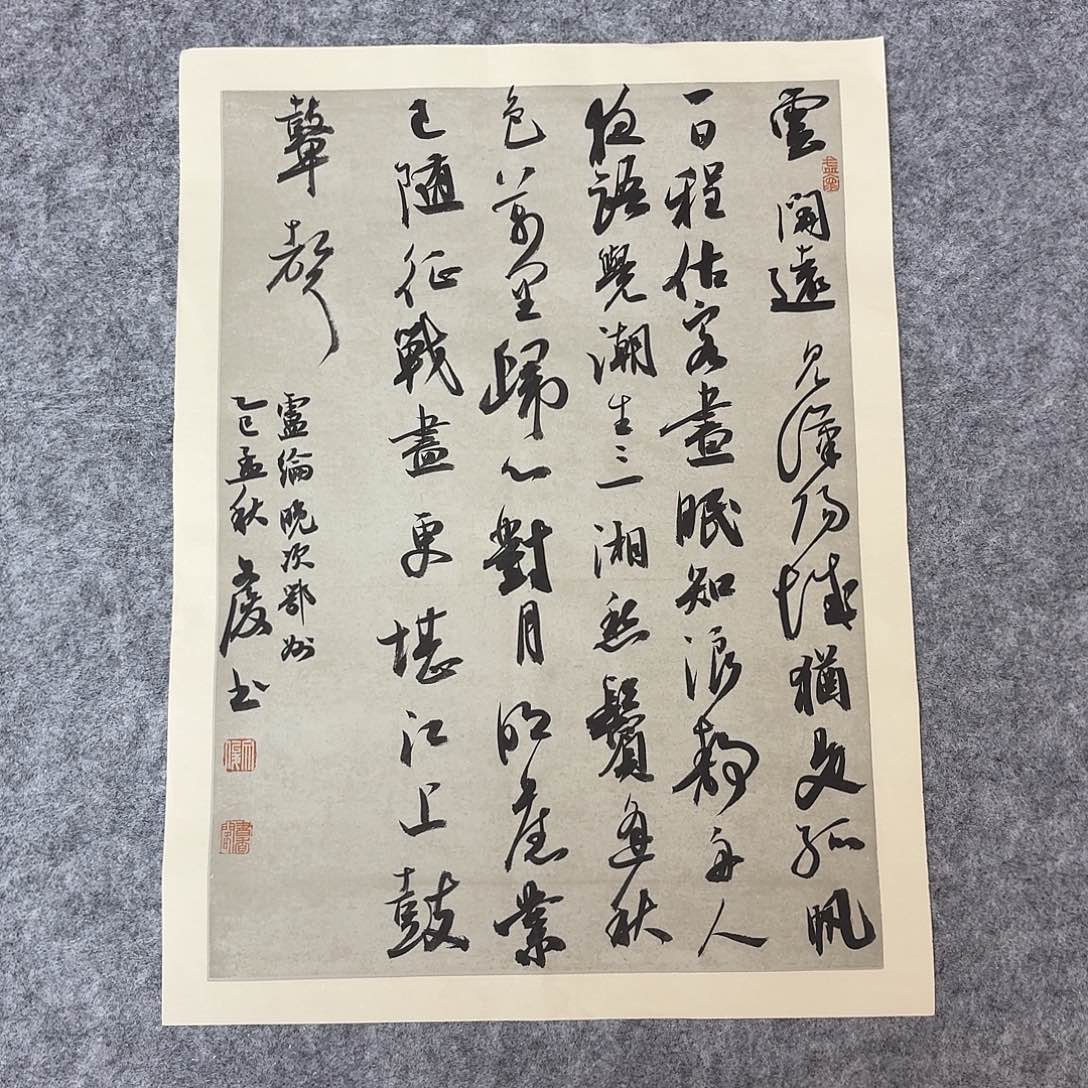 雲開遠見漢陽城猶是孤帆
一日程估客晝眠知浪靜舟人
夜語覺潮生三湘愁鬢逢秋
色萬里歸心對月明舊業
已随征戰盡更堪江上鼓
鼙聲
盧綸晚次鄂州
乙巳孟秋書